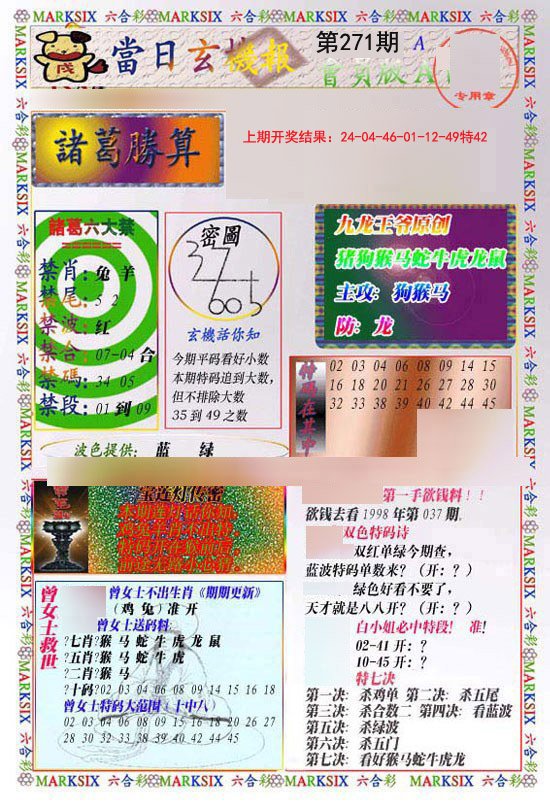 MARKSIX 六合彩 MARKSIX 六合彩 MARKSIX 六合彩 MARKSIX 六合彩
當日玄機報
第271期
會員版A
专用章
諸葛勝算
上期开奖结果：24-04-46-01-12-49特42
諸葛六大禁
禁肖：兔 羊
禁尾：5 2
禁波：红
禁合：07-04 合
禁碼：34 05
禁段：01 到 09
波色提供： 蓝 绿
密圖
玄機話你知
今期平码看好小数
本期特码追到大数，
但不排除大数
35 到 49 之数
九龙王爷原创
猪狗猴马蛇牛虎龙鼠
主攻：狗猴马
防：龙
特码在其中
02 03 04 06 08 09 14 15
16 18 20 21 26 27 28 30
32 33 38 39 40 42 44 45
宝莲灯传密
第一手欲钱料！！
欲钱去看 1998 年第 037 期。
双色特码诗
双红单绿今期查，
蓝波特码单数来？（开：？）
绿色好看不要了，
天才就是八人开？（开：？）
白小姐必中特段！ 准！
02-41 开：？
10-45 开：？
特七决
第一决：杀鸡单 第二决：杀五尾
第三决：杀合数二 第四决：看蓝波
第五决：杀绿波
第六决：杀五门
第七决：看好猴马蛇牛虎龙
曾女士救世
曾女士不出生肖《期期更新》
（鸡 兔）准 开
曾女士送码料
?七肖?猴 马 蛇 牛 虎 龙 鼠
?五肖?猴 马 蛇 牛 虎
?二肖?猴 马
?十码?02 03 04 06 08 09 14 15 16 18
曾女士特码大范围（十中八）
02 03 04 06 08 09 15 16 18 20 26 27
28 30 32 33 38 39 40 42 44 45
MARKSIX 六合彩 MARKSIX 六合彩 MARKSIX 六合彩 MARKSIX 六合彩